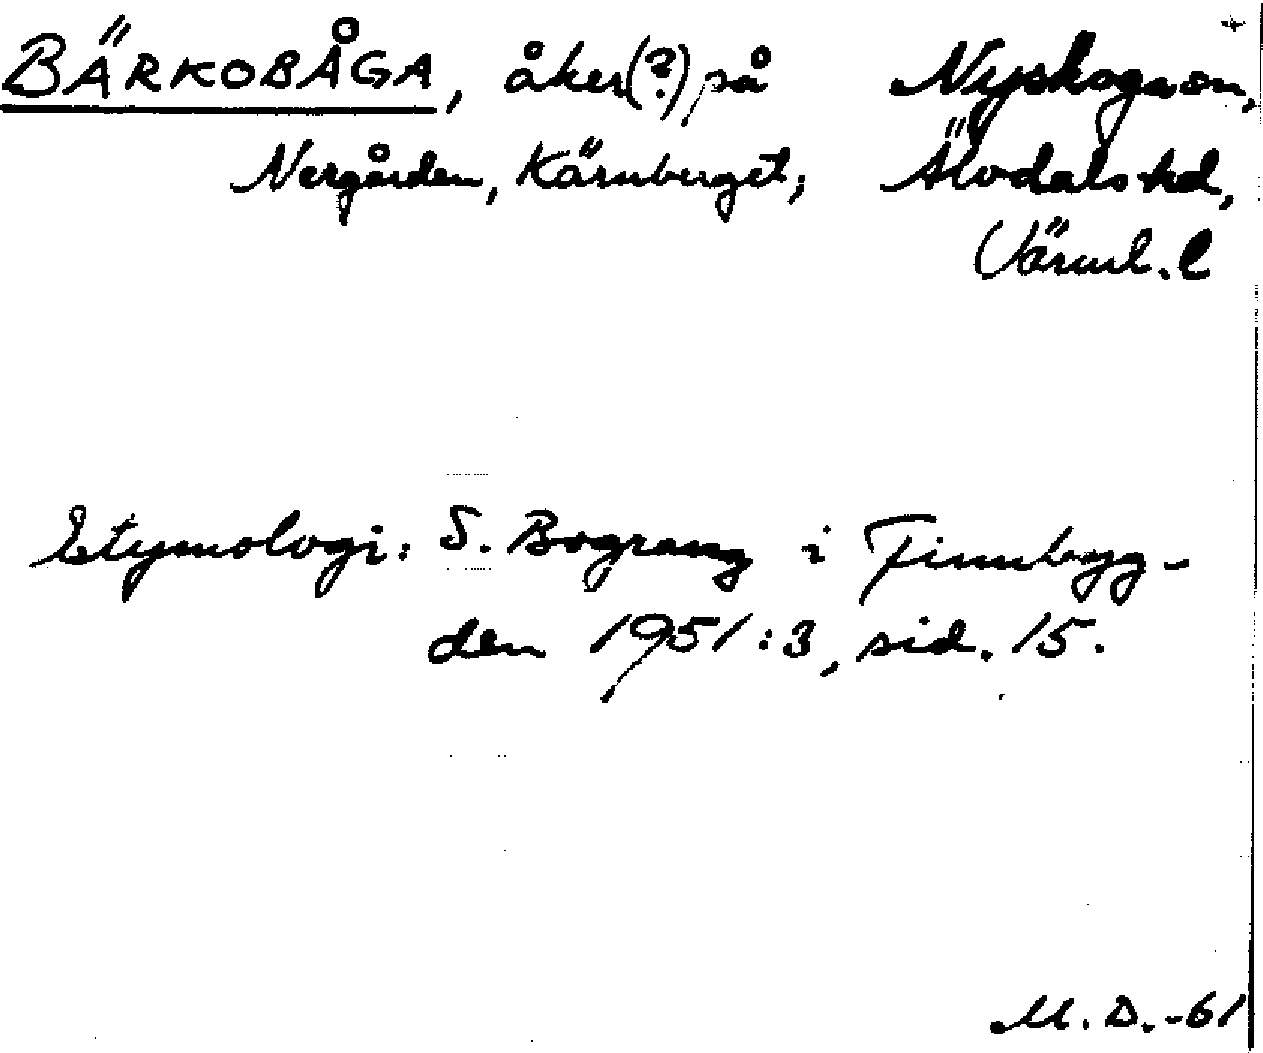 BÄRKOBÅGA, åker(?) på Nyskoga sn,
Nergården, Kärnberget; Älvdals hd,
Värml. l
Etymologi: S. Bograng i Finnbyg-
den 1951:3, sid. 15.
M. D. -61